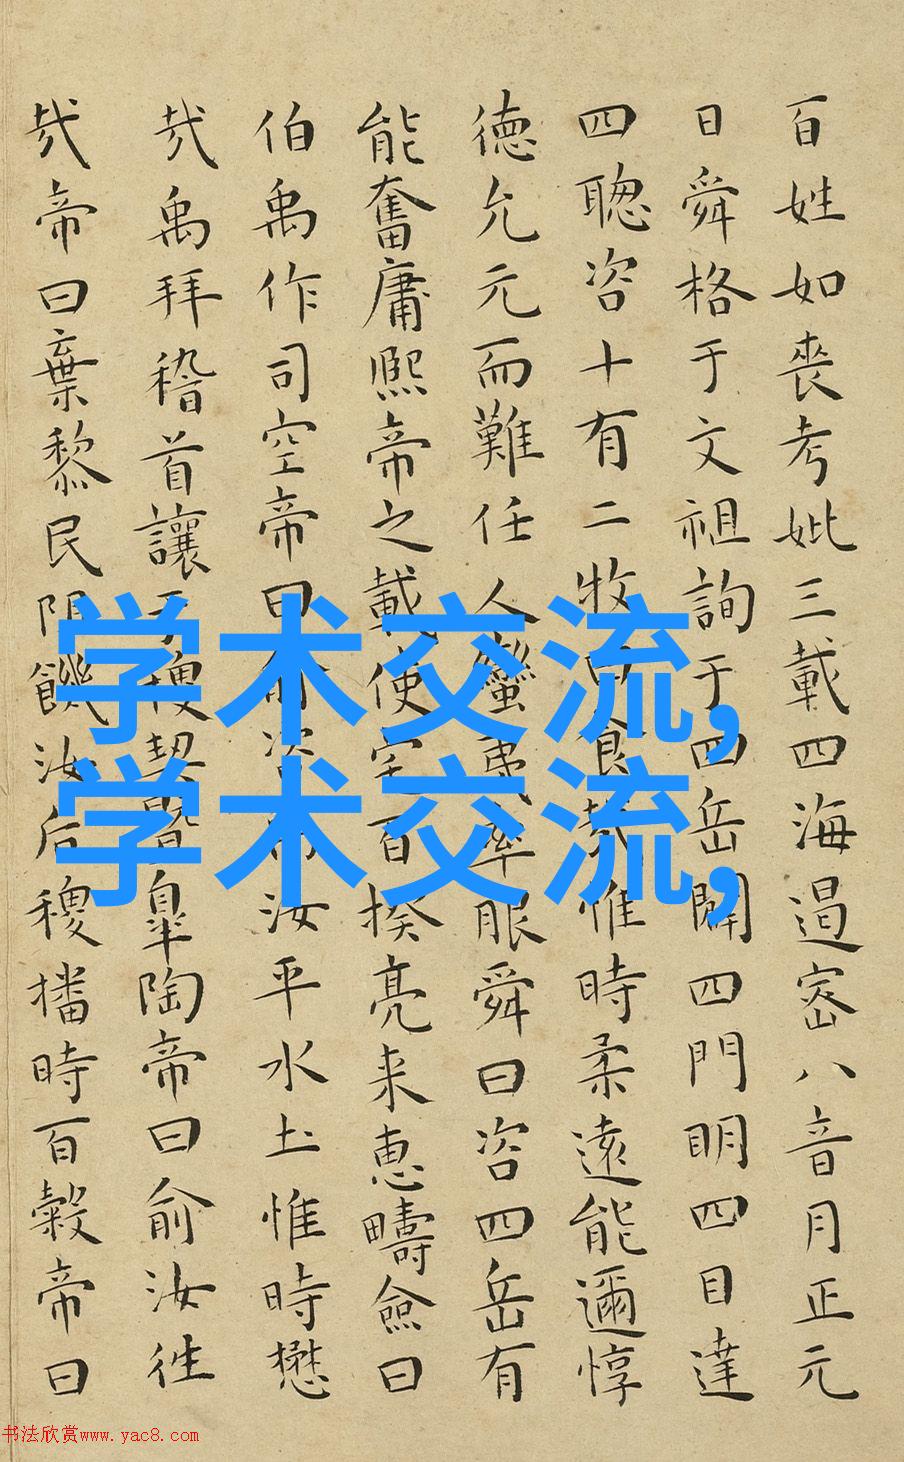 百姓如喪考妣三載四海遏密八音月正元
日舜格于文祖詢于四岳闢四門明四目達
四聰咨十有二牧曰食哉惟時柔遠能邇惇
德允元而難任人蠻夷率服舜曰咨四岳有
能奮庸熙帝之載使宅百揆亮采惠疇僉曰
伯禹作司空帝曰俞咨禹汝平水土惟時懋
哉禹拜稽首讓于稷契暨皋陶帝曰俞汝往
哉帝曰棄黎民阻饑汝后稷播時百穀帝曰
学术交流,
学术交流,
书法欣赏www.yac8.com